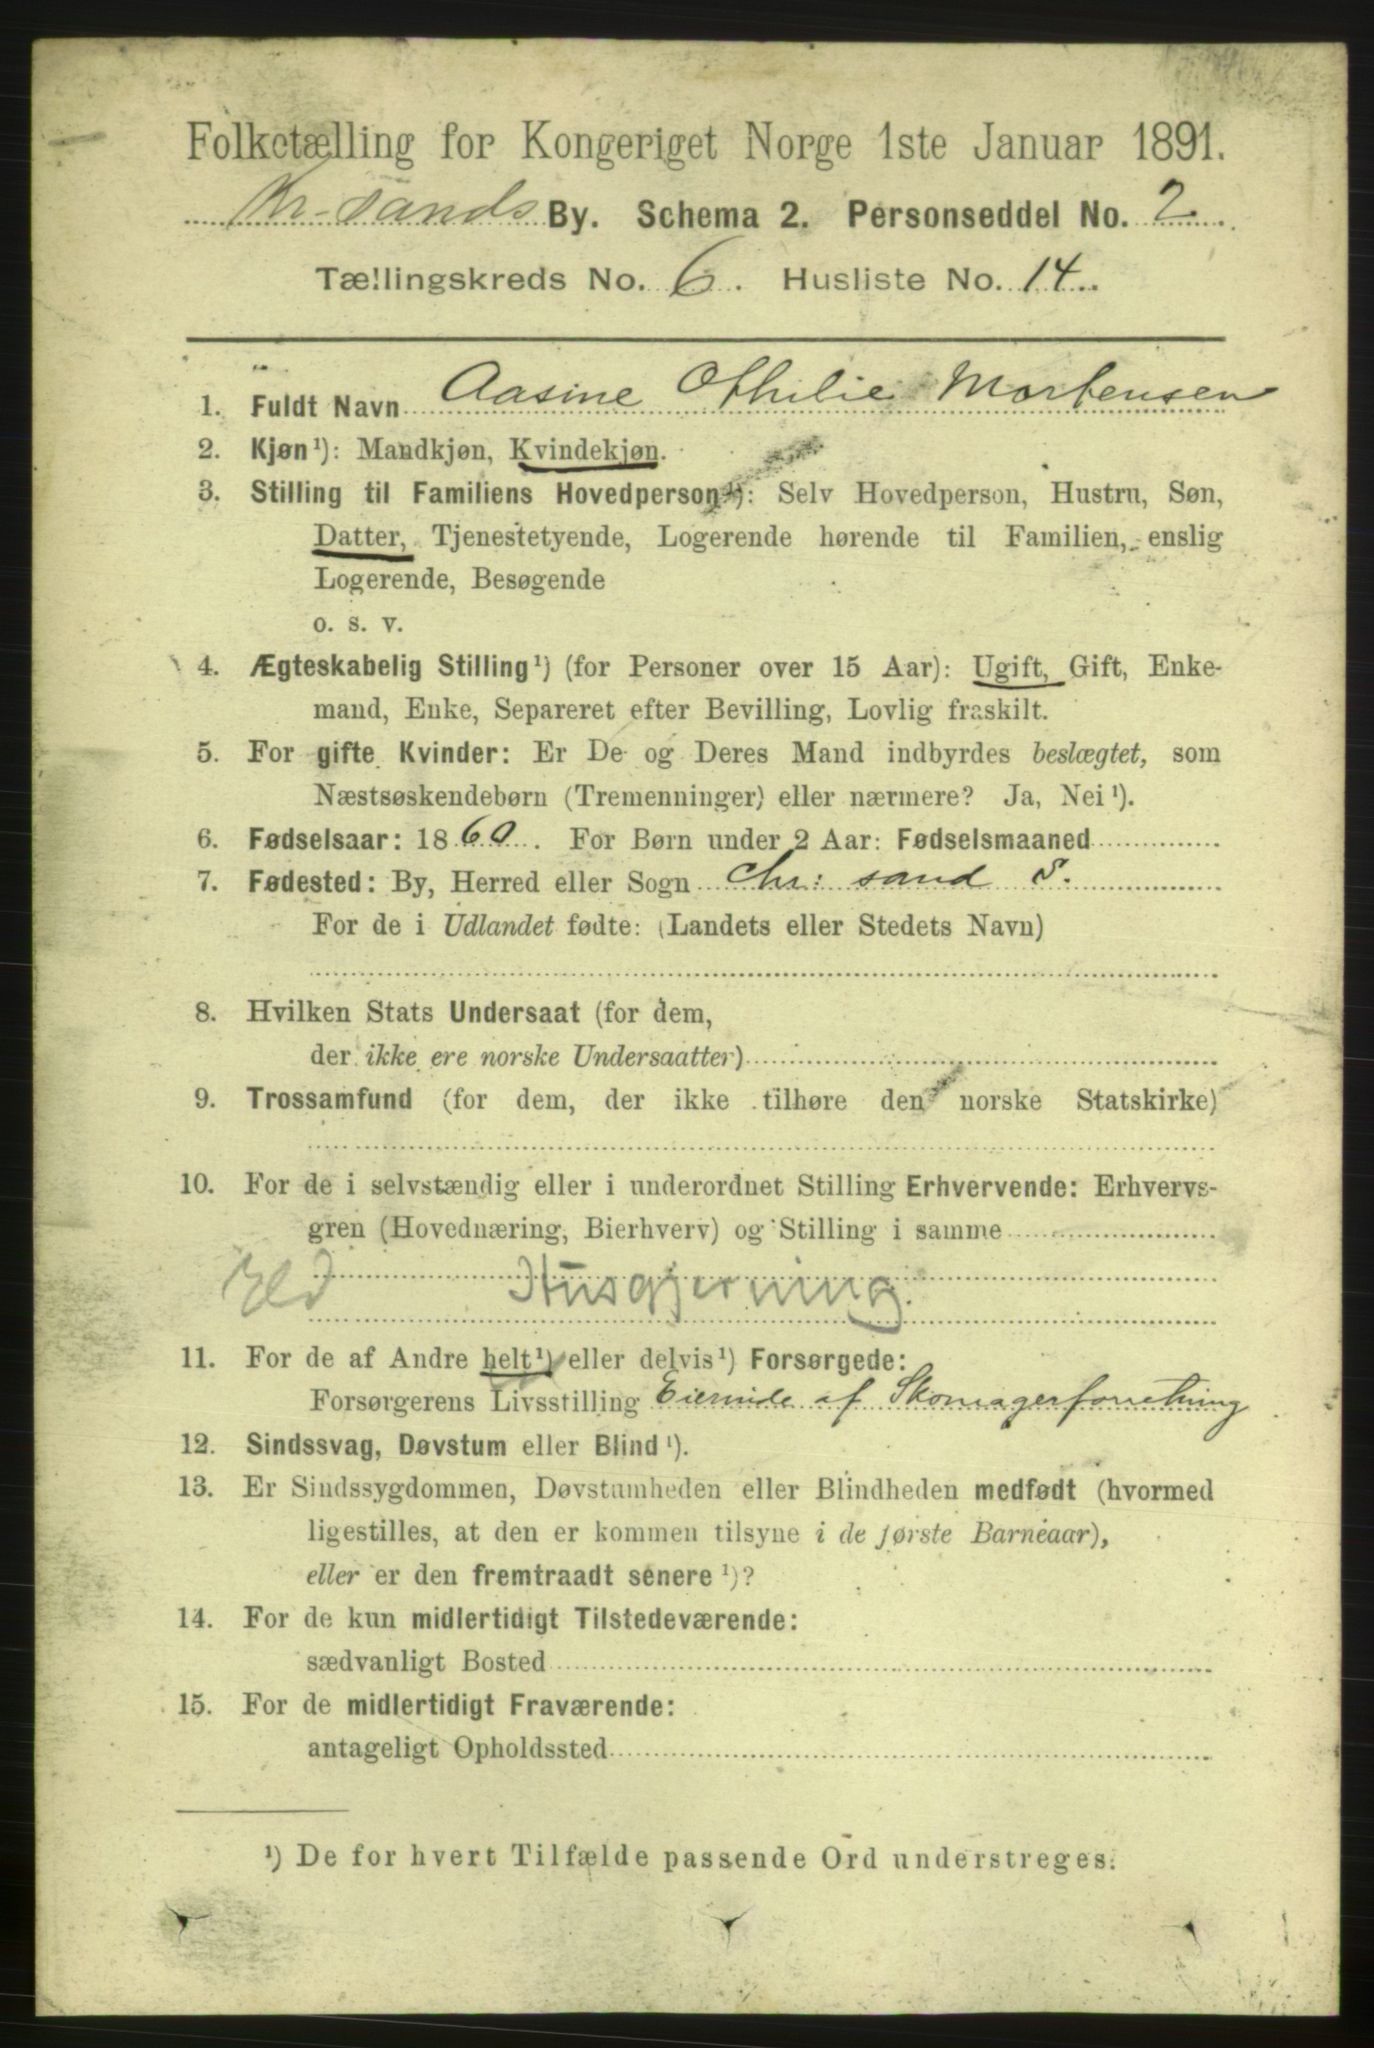 Folketælling for Kongeriget Norge 1ste Januar 1891.
Kr-sands By. Schema 2. Personseddel No. 2
Tællingskreds No. 6. Husliste No. 14.
1. Fuldt Navn Aasine Othilie Mortensen
2. Kjøn¹): Mandkjøn, Kvindekjøn.
3. Stilling til Familiens Hovedperson¹): Selv Hovedperson, Hustru, Søn,
Datter, Tjenestetyende, Logerende hørende til Familien, enslig
Logerende, Besøgende
o. s. v.
4. Ægteskabelig Stilling¹) (for Personer over 15 Aar): Ugift, Gift, Enke-
mand, Enke, Separeret efter Bevilling, Lovlig fraskilt.
5. For gifte Kvinder: Er De og Deres Mand indbyrdes beslægtet, som
Næstsøskendebørn (Tremenninger) eller nærmere? Ja, Nei¹).
6. Fødselsaar: 1860. For Børn under 2 Aar: Fødselsmaaned
7. Fødested: By, Herred eller Sogn Chr: sand S.
For de i Udlandet fødte: (Landets eller Stedets Navn)
8. Hvilken Stats Undersaat (for dem,
der ikke ere norske Undersaatter)
9. Trossamfund (for dem, der ikke tilhøre den norske Statskirke)
10. For de i selvstændig eller i underordnet Stilling Erhvervende: Erhvervs-
gren (Hovednæring, Bierhverv) og Stilling i samme
Husgjerning.
11. For de af Andre helt¹) eller delvis¹) Forsørgede:
Forsørgerens Livsstilling Eierinde af Skomagerforretning
12. Sindssvag, Døvstum eller Blind¹).
13. Er Sindssygdommen, Døvstumheden eller Blindheden medfødt (hvormed
ligestilles, at den er kommen tilsyne i de første Barneaar),
eller er den fremtraadt senere¹)?
14. For de kun midlertidigt Tilstedeværende:
sædvanligt Bosted
15. For de midlertidigt Fraværende:
antageligt Opholdssted
¹) De for hvert Tilfælde passende Ord understreges.